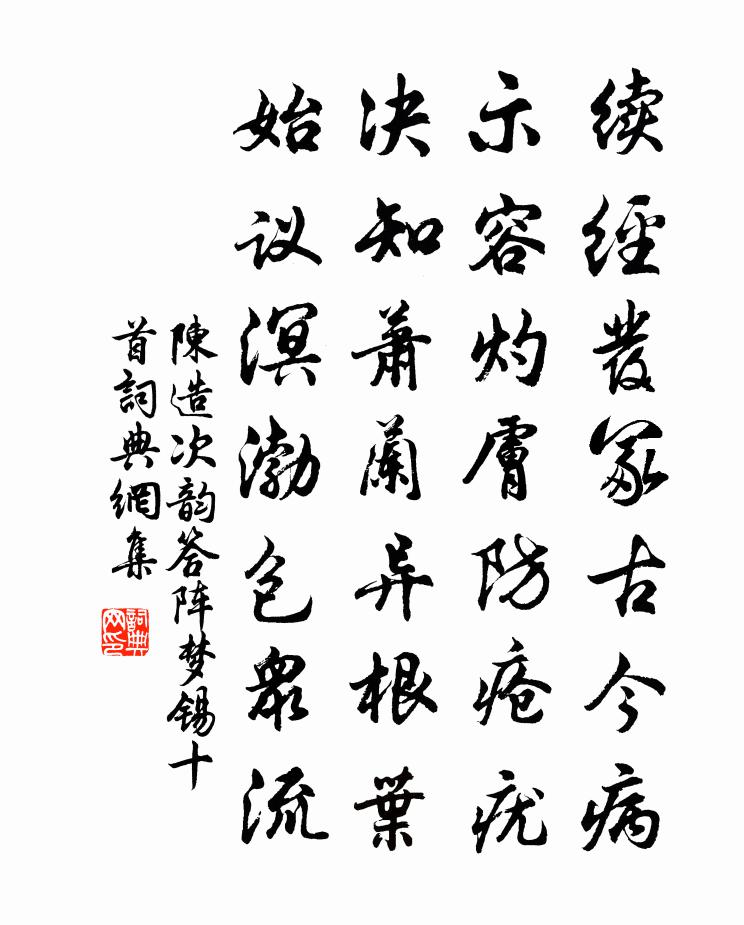 续經發冢古今病
示容灼膚防疮疣
决知萧蘭异根葉
始议溟渤包眾流
陳造次韵答阵梦锡十
首詞典網集
詞典网印